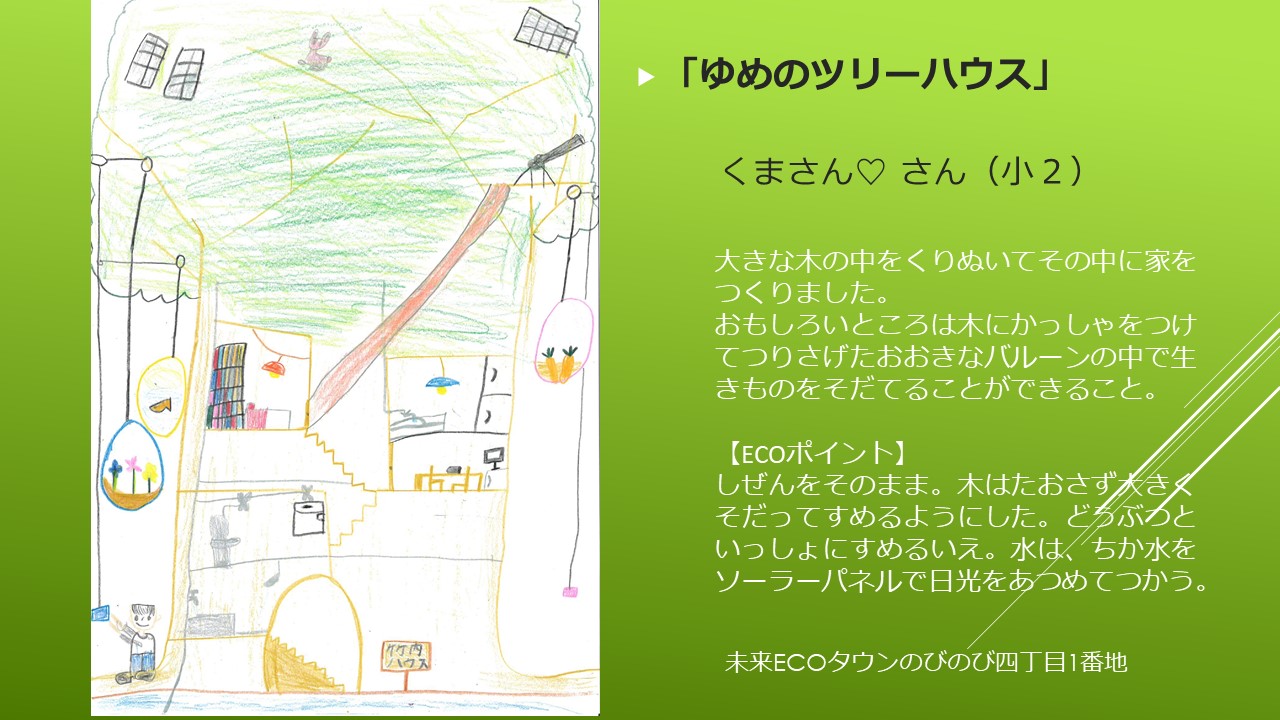 「ゆめのツリーハウス」
くまさん♡ さん（小２）
大きな木の中をくりぬいてその中に家を
つくりました。
おもしろいところは木にかっしゃをつけ
てつりさげたおおきなバルーンの中で生
きものをそだてることができること。
【ECOポイント】
しぜんをそのまま。木はたおさず大きく
そだってすめるようにした。どうぶつと
いっしょにすめるいえ。水は、ちか水を
ソーラーパネルで日光をあつめてつかう。
未来ECOタウンのびのび四丁目1番地
竹内
ハウス